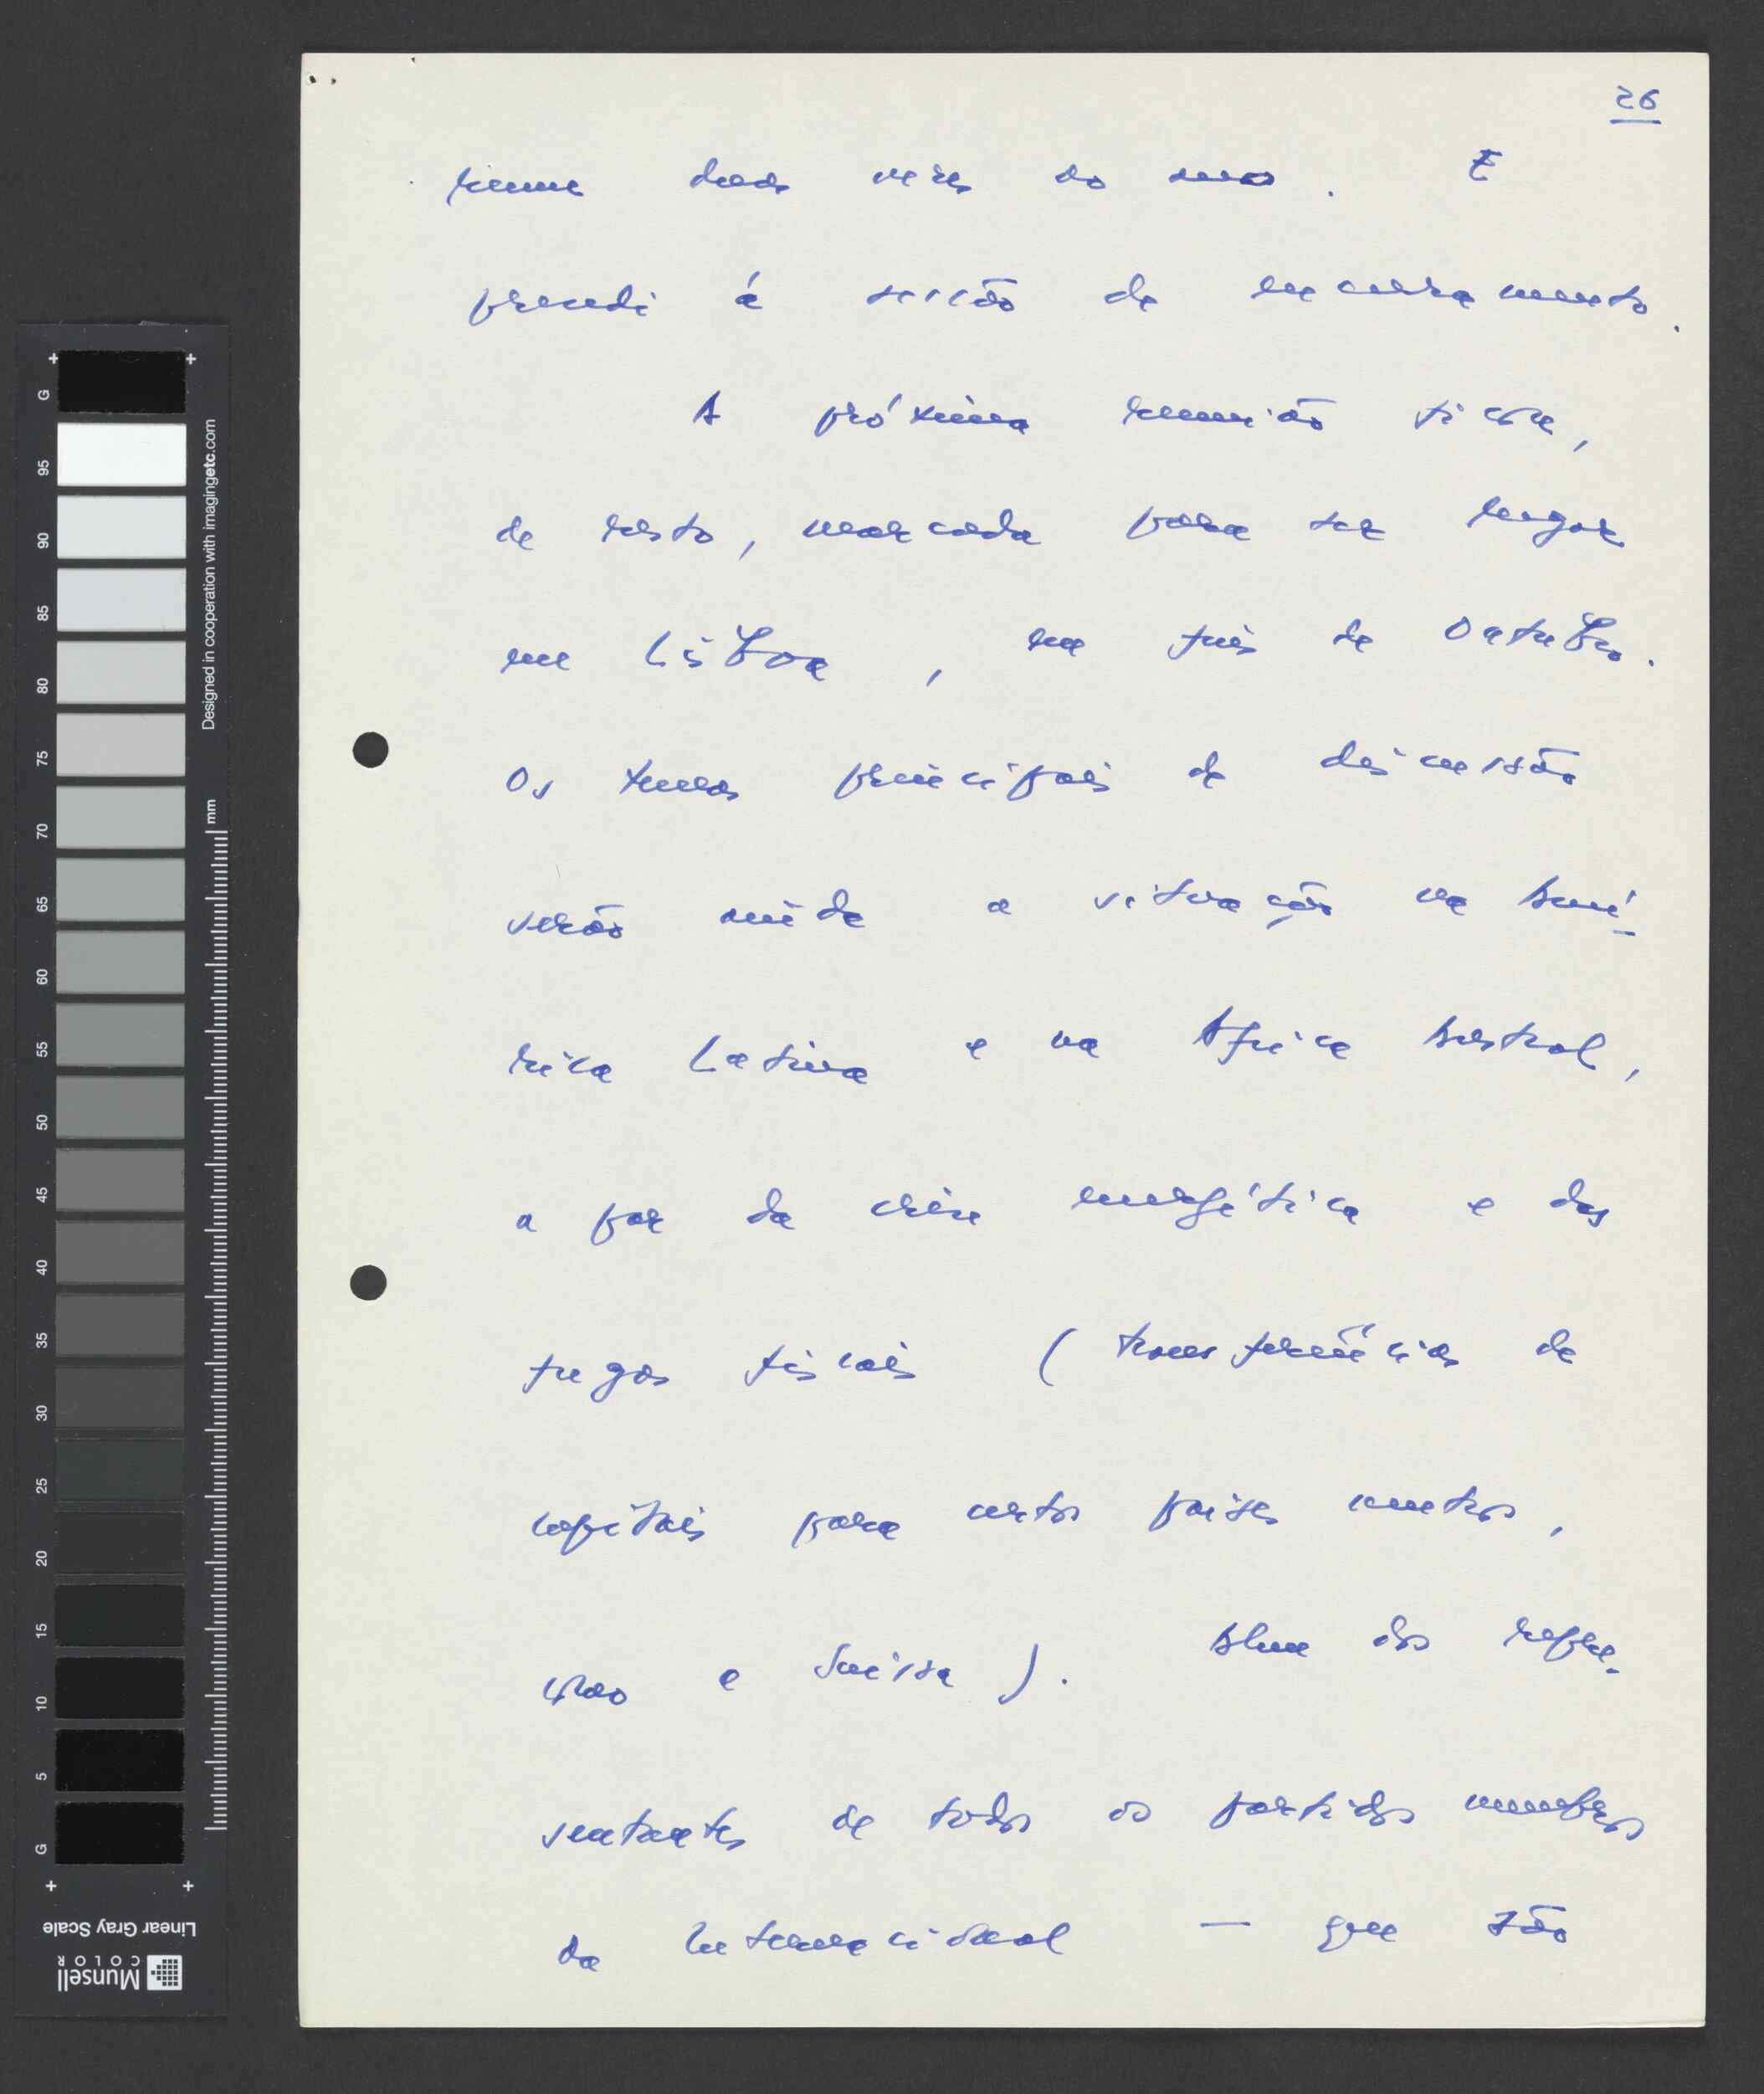 26
reune duas vezes ao ano. E
presidi à sessão de encerramento.
A próxima reunião ficou,
de resto, marcada para ter lugar
em Lisboa, em fins de Outubro.
Os temas principais de discussão
serão ainda a situação na Amé-
rica Latina e na Africa Austral,
a par da crise energética e das
fugas fiscais (transferências de
capitais para certos paises neutros,
como a Suissa). Alem dos repre-
sentantes de todos os partidos membros
da Internacional — que são
G 95 90 85 80 75 70 65 60 55 50 45 40 35 30 25 20 15 10 5 G
Designed in cooperation with imagingetc.com
mm
Linear Gray Scale
Munsell
COLOR